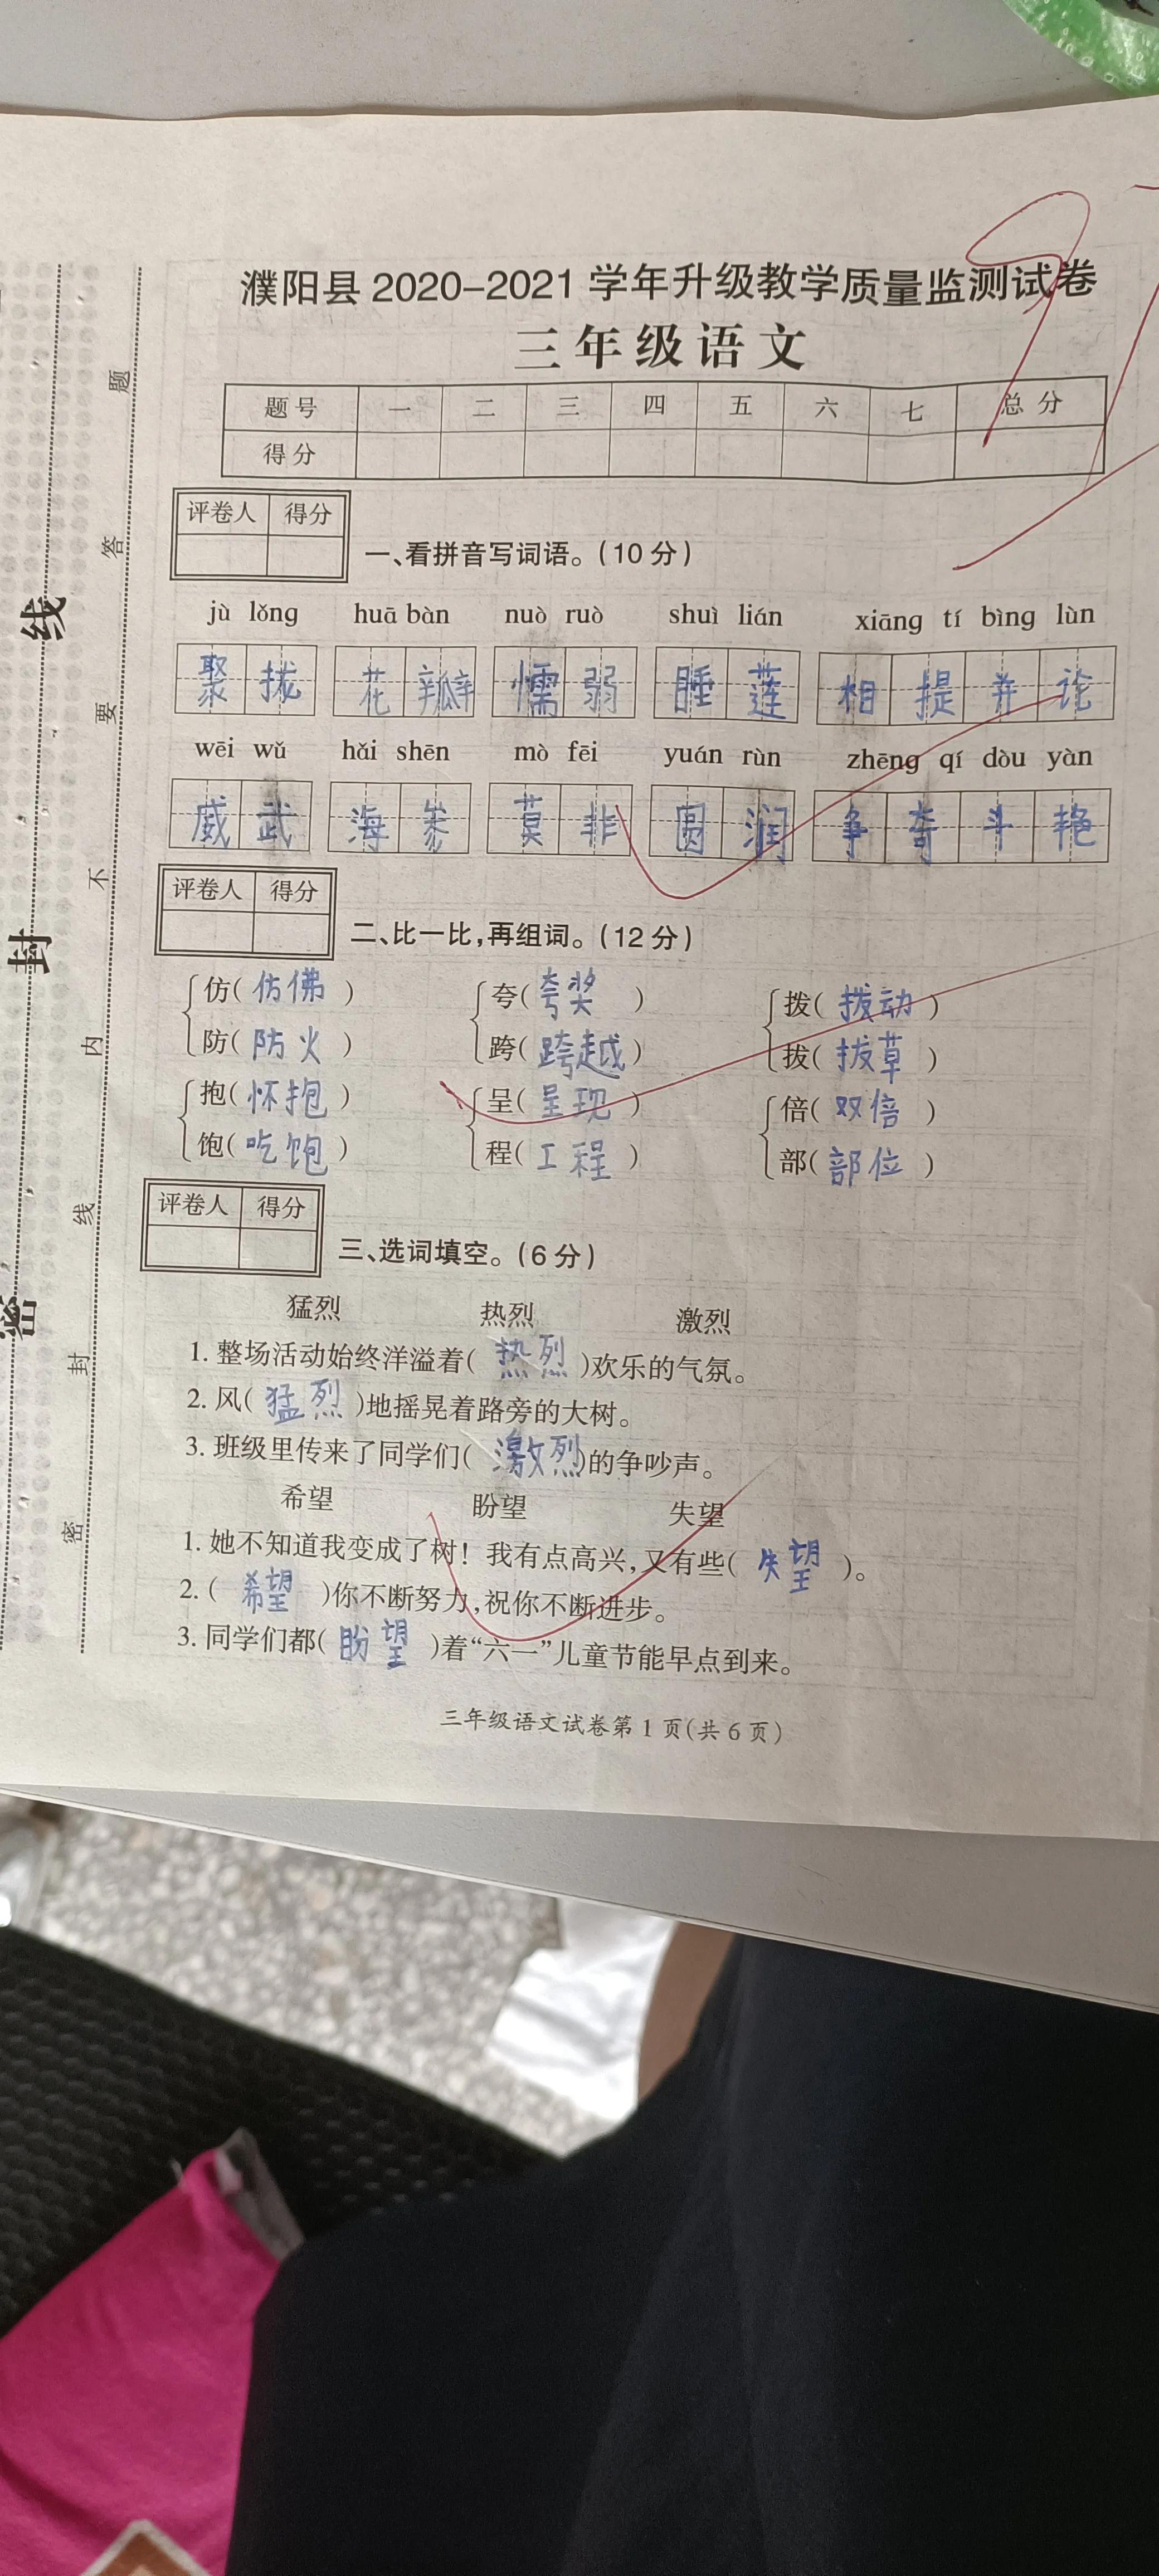 濮阳县2020-2021学年升级教学质量监测试卷
三年级语文
题号 一 二 三 四 五 六 七 总分
得分
评卷人 得分
一、看拼音写词语。(10分)
jù lǒng huā bàn nuò ruò shuì lián xiāng tí bìng lùn
聚拢 花瓣 懦弱 睡莲 相提并论
wēi wǔ hǎi shēn mò fēi yuán rùn zhēng qí dòu yàn
威武 海参 莫非 圆润 争奇斗艳
评卷人 得分
二、比一比,再组词。(12分)
仿(仿佛) 夸(夸奖) 拨(拨动)
防(防火) 跨(跨越) 拔(拔草)
抱(怀抱) 呈(呈现) 倍(双倍)
饱(吃饱) 程(工程) 部(部位)
评卷人 得分
三、选词填空。(6分)
猛烈 热烈 激烈
1. 整场活动始终洋溢着(热烈)欢乐的气氛。
2. 风(猛烈)地摇晃着路旁的大树。
3. 班级里传来了同学们(激烈)的争吵声。
希望 盼望 失望
1. 她不知道我变成了树!我有点高兴,又有些(失望)。
2. (希望)你不断努力,祝你不断进步。
3. 同学们都(盼望)着“六一”儿童节能早点到来。
三年级语文试卷第1页(共6页)
密 封 线
密 封 线 内 不 要 答 题